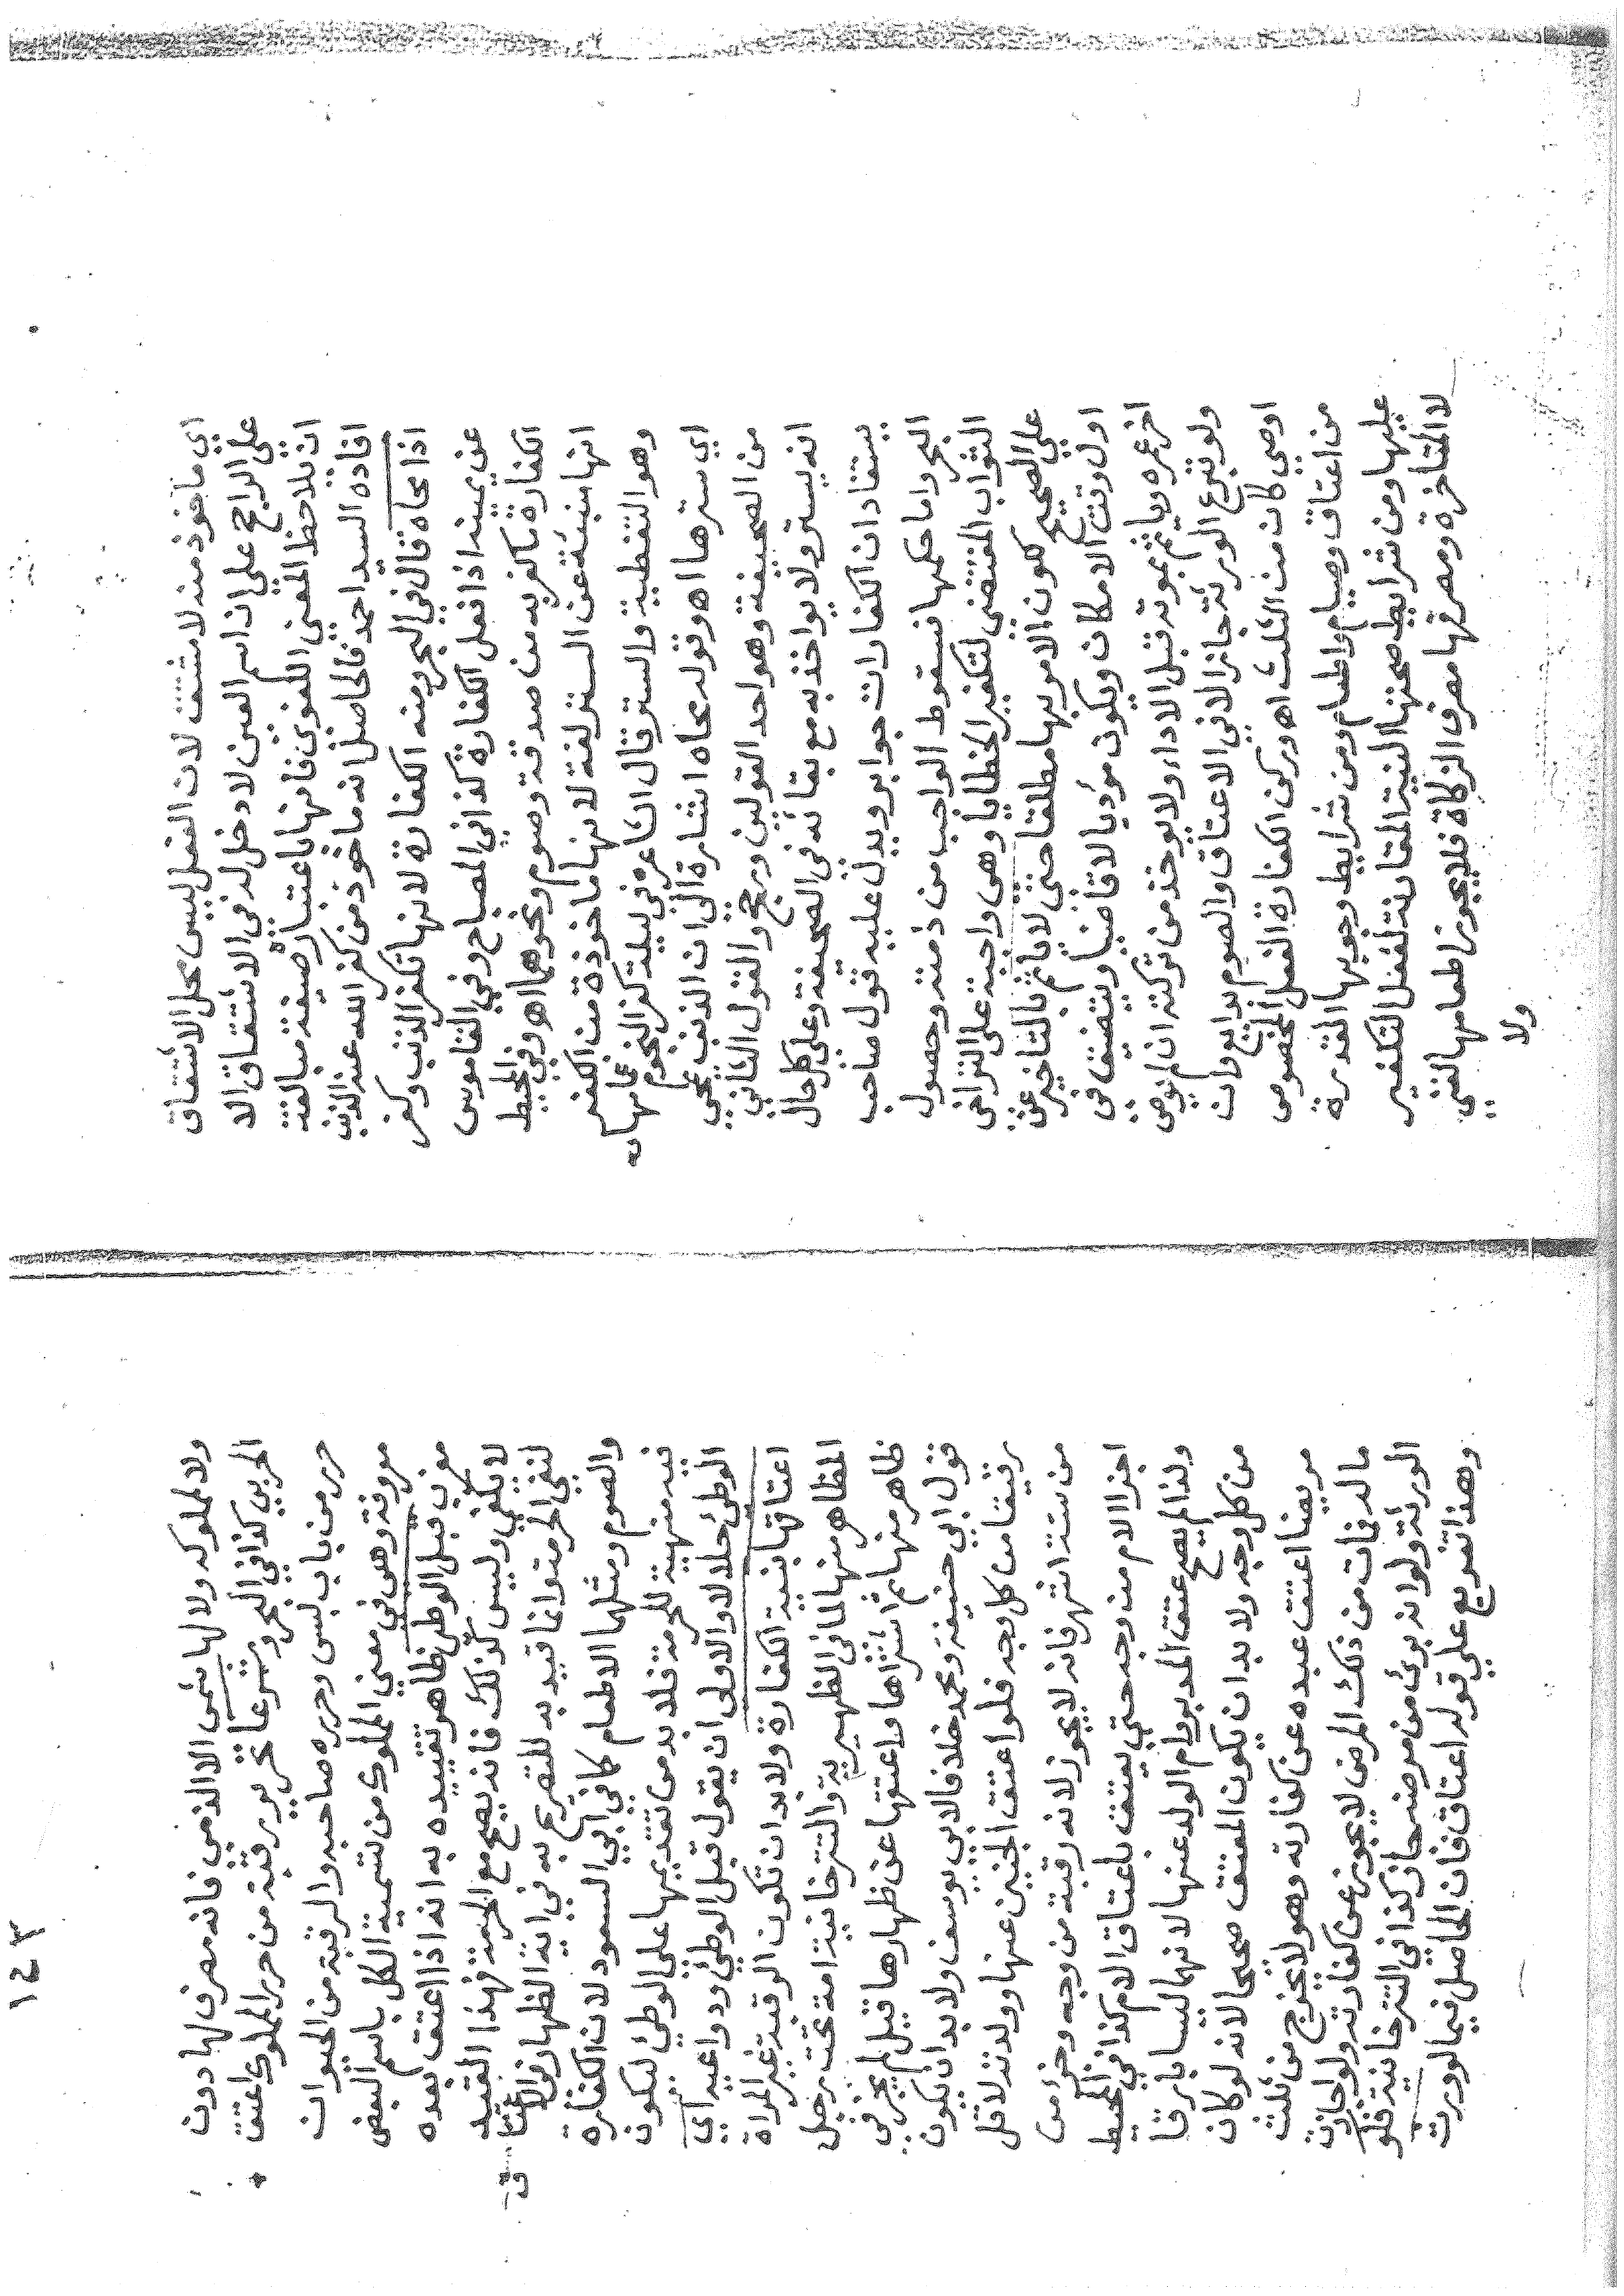 اي ماخوذ منه لا مشتق لان الفعل ليس محل الاشتقاق
على الراجح على ان اسم العين لا دخل له في الاشتقاق الا
ان يلاحظ المعنى اللغوي فانها باعتبارة صيغة مبالغة
افاده السيد احمد فالحاصل انه ماخوذ من كفر الله عنه الذنب
اذا محاه قال في البحر ومنه الكفارة لانها تكفر الذنب وكفر
عن يمينه اذا فعل الكفارة كذا في المصباح وفي القاموس
الكفارة ما كفر به من صدقة وصوم ونحوهما اه وفي المحيط
انها منبئة عن الستر لغة لانها ماخوذة من الكفر
وهو التغطية والستر قال الشاعر في ليلة كفر النجوم غمامها
اي سترها اه وقوله محاه اشارة الى ان الذنب يمحي
من الصحيفة وهو احد القولين ورجح والقول الثاني
انه يستر ولا يواخذ به مع بقائه في الصحيفة وعلى كل حال
يستفاد ان الكفارات جوابر ويدل عليه قول صاحب
البحر واما حكمها فسقوط الواجب من ذمته وحصول
الثواب المقتضي لتكفير الخطايا وهي واجبة على التراخي
على الصحيح لكون الامر بها مطلقا حتى لا ياثم بالتاخير عن
اول وقت الامكان ويكون مؤديا لا قاضيا ويتضيق في
اخر عمره وياثم بموته قبل الاداء ولا يوخذ من تركته ان لم يوص
ولو تبرع الورثة جاز الا في الاعتاق والصوم بدايع وان
اوصى كان من الثلث اه وركن الكفارة الفعل المخصوص
من اعتاق وصيام واطعام ومن شرايط وجوبها القدرة
عليها ومن شرايط صحتها النية المقارنة لفعل التكفير
لا المتاخرة ومصرفها مصرف الزكاة فلا يجوز اطعامها لغني
ولا
١٤٣
ولا لمملوكه ولا لهاشمي الا الذمي فانه مصرف لها دون
الحربي كذا في البحر وشرعا تحرير رقبة من حرر المملوك اعتق
حرر من باب لبس وحرره صاحبه والرقبة من الحيوان
معروفة وهي في معنى المملوك من تسمية الكل باسم البعض
مغرب قبل الوطئ ظاهر تقييده به انه اذا اعتق بعده
لا يكفي وليس كذلك فانه يصح مع الحرمة فهذا القيد
لنفي الحرمة وانما قيد به للتصريح به في اية الظهار في الاعتاق
والصوم ومثلهما الاطعام كما في ابي السعود لان الكفارة
فيه منهية للحرمة فلا بد من تقديمها على الوطئ ليكون
الوطئ حلالا والاولى ان يقول قبل الوطئ ودواعيه اي
اعتاقها بنية الكفارة ولا بد ان تكون الرقبة غير المراة
المظاهر منها لما في الظهيرية والتترخانية امة تحت رجل
ظاهر منها ثم اشتراها واعتقها عن ظهارها قيل لم يجز في
قول ابي حنيفة ومحمد خلافا لابي يوسف ولا بد ان يكون
رقيقا من كل وجه فلو اعتق الجنين عنها وولدته لاقل
من ستة اشهر فانه لا يجوز لانه رقبة من وجه وجزؤ من
اجزا الام من وجه حتى يعتق باعتاق الام كذا في المحيط
ولذا لم يصح عتق المدبر وام الولد عنها لانهما ليسا بارقا
من كل وجه ولا بد ان يكون المعتق صحيحا لانه لو كان
مريضا اعتق عبده عن كفارته وهو لا يخرج من ثلث
ماله فمات من ذلك المرض لا يجوز عن كفارته ولو اجازت
الورثة ولو انه بري من مرضه جاز كذا في التترخانية فلو
وهذا تفريع على قوله اعتاق فان الحاصل فيما لو ورث